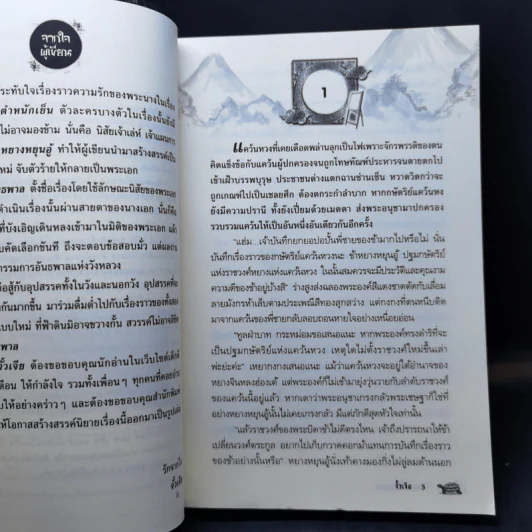 จากใจ
ผู้เขียน
ระทับใจเรื่องราวความรักของพระนางในเรื่อง
ตำหนักเย็น ตัวละครบางตัวในเรื่องนั้นยังมี
ไม่อาจมองข้าม นั่นคือ นิสัยเจ้าเล่ห์ เจ้าแผนการ
หยางหยุนอู้ ทำให้ผู้เขียนนำมาสร้างสรรค์เป็น
ใหม่ จับตัวร้ายให้กลายเป็นพระเอก
ธพาล ตั้งชื่อเรื่องโดยใช้ลักษณะนิสัยของพระเอก
ดำเนินเรื่องนั้นผ่านสายตาของนางเอก นั่นก็คือ
ที่บังเอิญเดินหลงเข้ามาในมิติของพระเอก แล้ว
คัดเลือกขันที ถึงจะตอบข้อสอบมั่ว แต่ผลงาน
กรรมการอันธพาลแห่งวังหลวง
สู้กับอุปสรรคทั้งในวังและนอกวัง อุปสรรคที่จะ
กันมากขึ้น มาร่วมดื่มด่ำไปกับเรื่องราวของทั้งสอง
แบบใหม่ ที่ฟ้าดินมิอาจขวางกั้น สวรรค์ไม่อาจลิขิต
ธพาล
จั๋วเจีย ต้องขอขอบคุณนักอ่านในเว็บไซต์เด็กดี
ดือน ให้กำลังใจ รวมทั้งเพื่อนๆ ทุกคนที่คอยอ่าน
ให้อย่างคร่าวๆ และต้องขอขอบคุณสำนักพิมพ์
ให้โอกาสสร้างสรรค์นิยายเรื่องนี้ออกมาเป็นรูปเล่ม
รักจากใจ
1
แคว้นหวงที่เคยเดือดพล่านลุกเป็นไฟเพราะจักรพรรดิของตน
คิดแข็งข้อกับแคว้นผู้ปกครองจนถูกโทษทัณฑ์ประหารจนตายตกไป
เข้าเฝ้าบรรพบุรุษ ประชาชนต่างแตกฉานซ่านเซ็น หวาดวิตกว่าจะ
ถูกเกณฑ์ไปเป็นเชลยศึก ต้องตระกำลำบาก หากกษัตริย์แคว้นหง
ยังมีความปรานี ทั้งยังเปี่ยมด้วยเมตตา ส่งพระอนุชามาปกครอง
รวบรวมแคว้นให้เป็นอันหนึ่งอันเดียวกันอีกครั้ง
"แฮ่ม...เจ้าบันทึกยกยอปอปั้นพี่ชายของข้ามากไปหรือไม่ นั่น
บันทึกเรื่องราวของกษัตริย์แคว้นหวงนะ ข้าหยางหยุนอู้ ปฐมกษัตริย์
แห่งราชวงศ์หยางแห่งแคว้นหวง ในนั้นสมควรจะมีประวัติและคุณงาม
ความดีของข้าอยู่บ้างสิ" ร่างสูงส่งฉลองพระองค์สีแดงชาดตัดกับเลื่อม
ลายมังกรห้าเล็บตามประเพณีสีทองสุกสว่าง แต่กงกงที่ตนหนีบติด
มาจากแคว้นของพี่ชายกลับลอบถอนหายใจอย่างเหนื่อยอ่อน
"ทูลฝ่าบาท กระหม่อมขอเสนอแนะ หากพระองค์ทรงดำริที่จะ
เป็นปฐมกษัตริย์แห่งแคว้นหวง เหตุใดไม่ตั้งราชวงศ์ใหม่ขึ้นเล่า
พ่ะย่ะค่ะ" เหยากงกงเสนอแนะ แม้ว่าแคว้นหวงจะอยู่ใต้อำนาจของ
หยางจินหลงฮ่องเต้ แต่พระองค์ก็ไม่เข้ามายุ่งวุ่นวายกับลำดับราชวงศ์
ของแคว้นนี้อยู่แล้ว หากเดาว่าพระอนุชาเกรงกลัวพระเชษฐาก็ใช่ที่
อย่างหยางหยุนอู้นั้นไม่เคยเกรงกลัว มีแต่ภักดีสุดหัวใจเท่านั้น
"แล้วราชวงศ์ของพระบิดาข้าไม่ดีตรงไหน เจ้าถึงปรารถนาให้ข้า
เปลี่ยนวงศ์ตระกูล อยากไปเก็บกวาดคอกม้าแทนการบันทึกเรื่องราว
ของข้าอย่างนั้นหรือ" หยางหยุนอู้นั่งเท้าคางมองกิ่งไผ่ลู่ลมด้านนอก
จั๋วเจีย 5